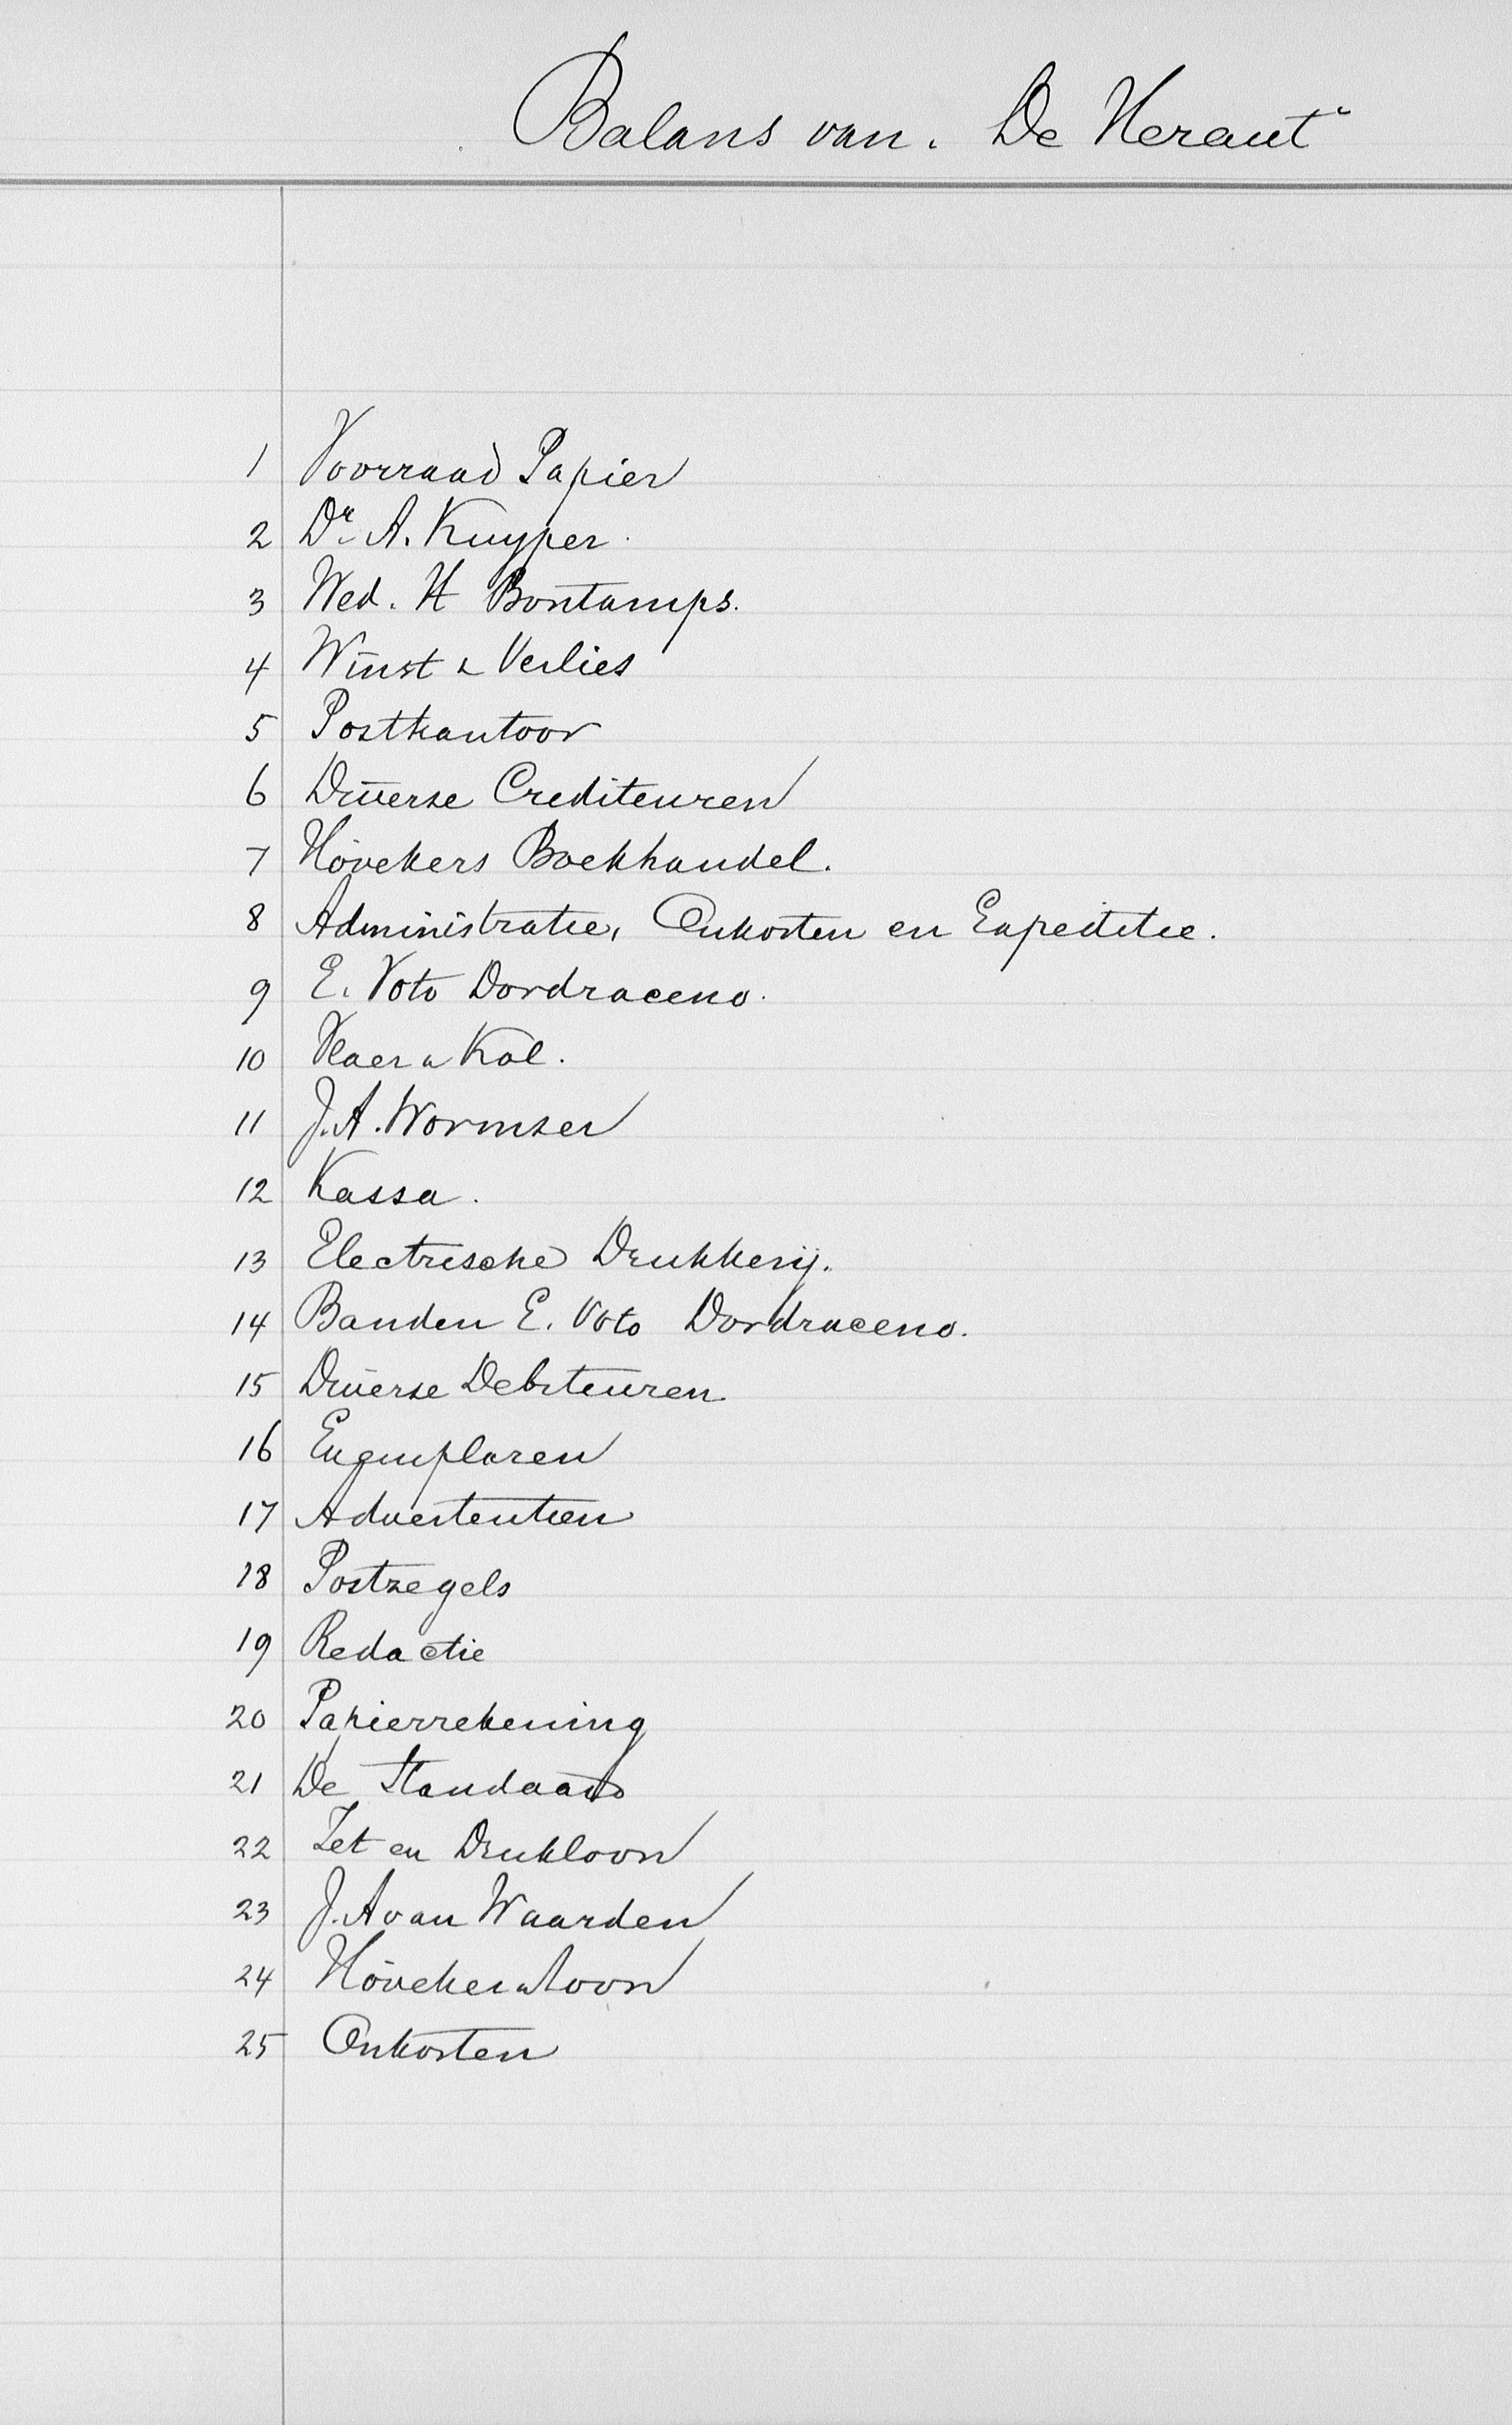 Balans van „De Heraut"
1 Voorraad Papier
2 Dr. A. Kuyper.
3 Wed. H Bontamps.
4 Winst & Verlies
5 Postkantoor
6 Diverse Crediteuren
7 Hövekers Boekhandel.
8 Administratie, Onkosten en Expeditie.
9 E. Voto Dordraceno.
10 Vlaer & Kol.
11 J. A. Wormser
12 Kassa.
13 Electrische Drukkerij.
14 Banden E. Voto Dordraceno.
15 Diverse Debiteuren
16 Exemplaren
17 Advertentien
18 Postzegels
19 Redactie
20 Papierrekening
21 De Standaard
22 Zet en Drukloon
23 J. A van Waarden
24 Höveker & Zoon
25 Onkosten